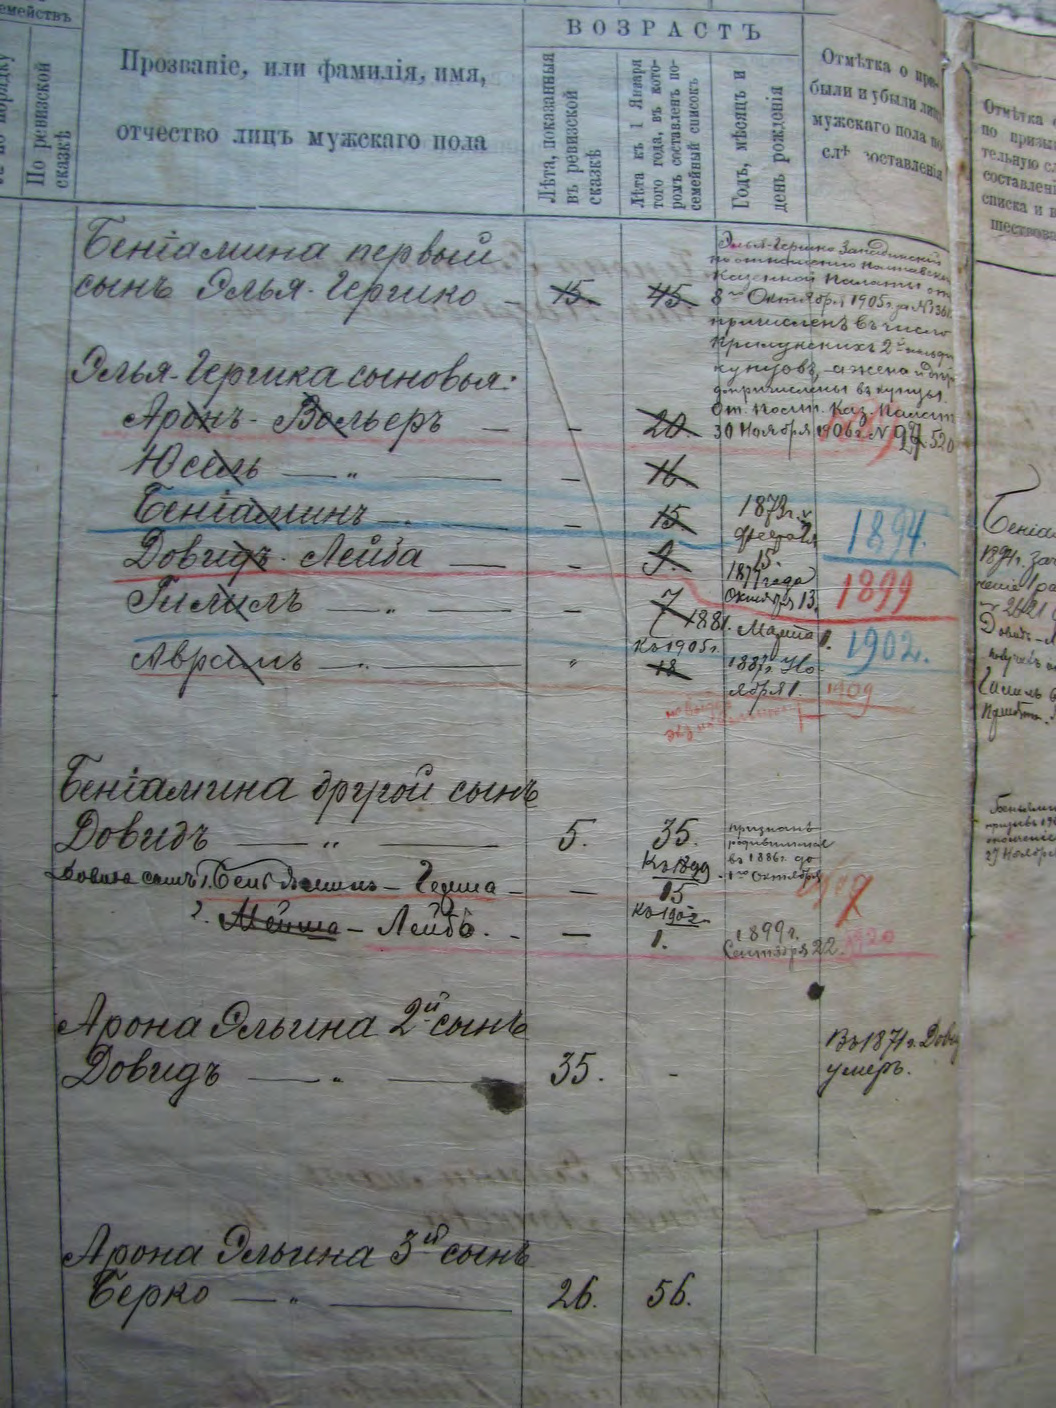 семействъ
по порядку
По ревизской
сказкѣ
Прозваніе, или фамилія, имя,
отчество лицъ мужскаго пола
ВОЗРАСТЪ
Лѣта, показанныя
въ ревизской
сказкѣ
Лѣта къ 1 Января
того года, въ кото-
ромъ составленъ по-
семейный списокъ
Годъ, мѣсяцъ и
день рожденія
Отмѣтка о при-
были и убыли лицъ
мужскаго пола по-
слѣ составленія
Отмѣтка
по призы
тельную сл
составлені
списка и п
шествова
Беніамина первый
сынъ Элья-Гершко - 15. 45.
Элья-Гершко
по отношенію Полтавской
Казенной Палаты отъ
8го Октября 1905 г за №
причисленъ въ число
Прилукскихъ 2й гильдіи
купцовъ, а жена и дѣти
причислены въ купцы
От. Полт. Каз. Палат.
30 Ноября 1906 г. N 29520
Элья-Гершка сыновья:
Аронъ-Вольеръ - - 20.
Юсель — „ — - 16
Беніаминъ - „ — - 15 1873 г.
Февраля
15.
1894.
Довидъ-Лейба — - 9. 1877 года
Октября 13.
1899
Гилилъ — „ — - 7 1881. Марта 1.
1902.
Аврамъ — „ — „
Къ 1905 г.
18
1887 г. Но-
ября 1.
1909
Беніамина другой сынъ
Довидъ — „ — 5. 35.
признанъ
родившимся
въ 1886 г. до
1го Октября
Довида сынъ 1. - - Къ 1899
15
1907
2. Лейба. - - Къ 1902
1.
1899 г.
Сентября 22.
1920
Арона Эльина 2й сынъ
Довидъ — „ — 35. -
Въ 1871 г. Довид
умеръ.
Арона Эльина 3й сынъ
Берко — „ — 26. 56.
Беніа
1894 г. за
Довидъ-Л
27 Ноября